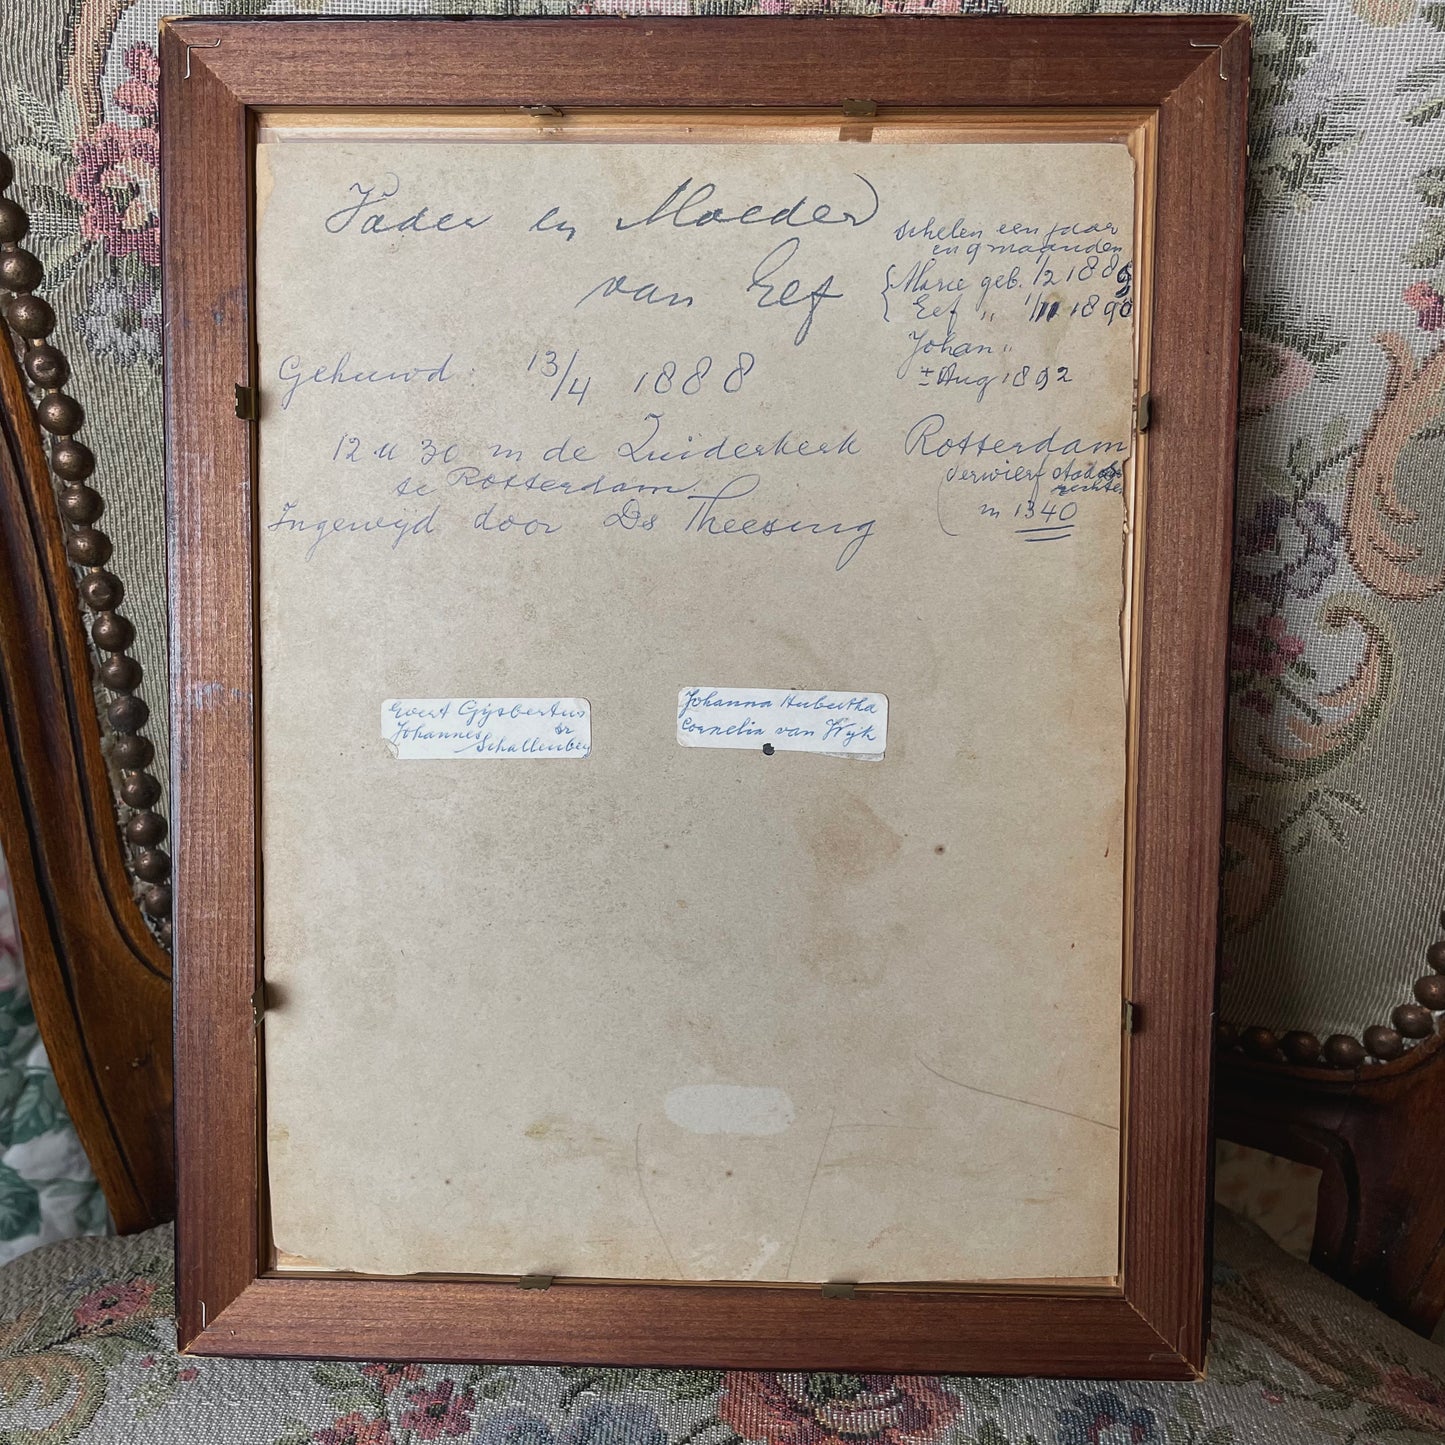 Vader en Moeder
van Eef
schelen een jaar
en 9 maanden
{ Marie geb. 1/2 1889
{ Eef " 1/11 1890
Johan "
± Aug 1892
Gehuwd: 13/4 1888
12 u 30 in de Zuiderkerk
te Rotterdam
Ingewijd door Ds Theesing
Rotterdam
verwierf stads
rechten
in 1340
Evert Gijsbertus
Johannes sr
Schallenberg
Johanna Hubertha
Cornelia van Wijk